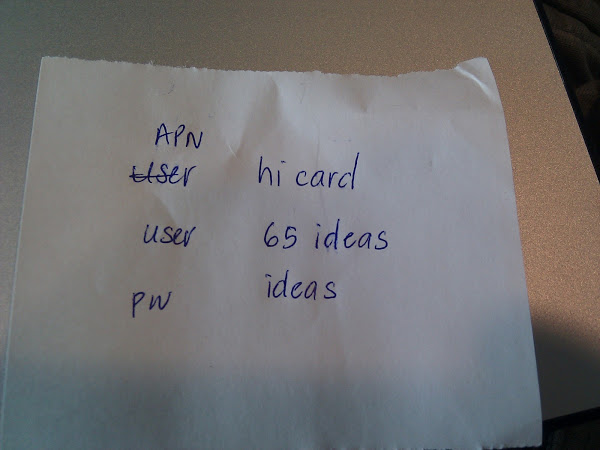 APN
User hi card
user 65 ideas
pw ideas